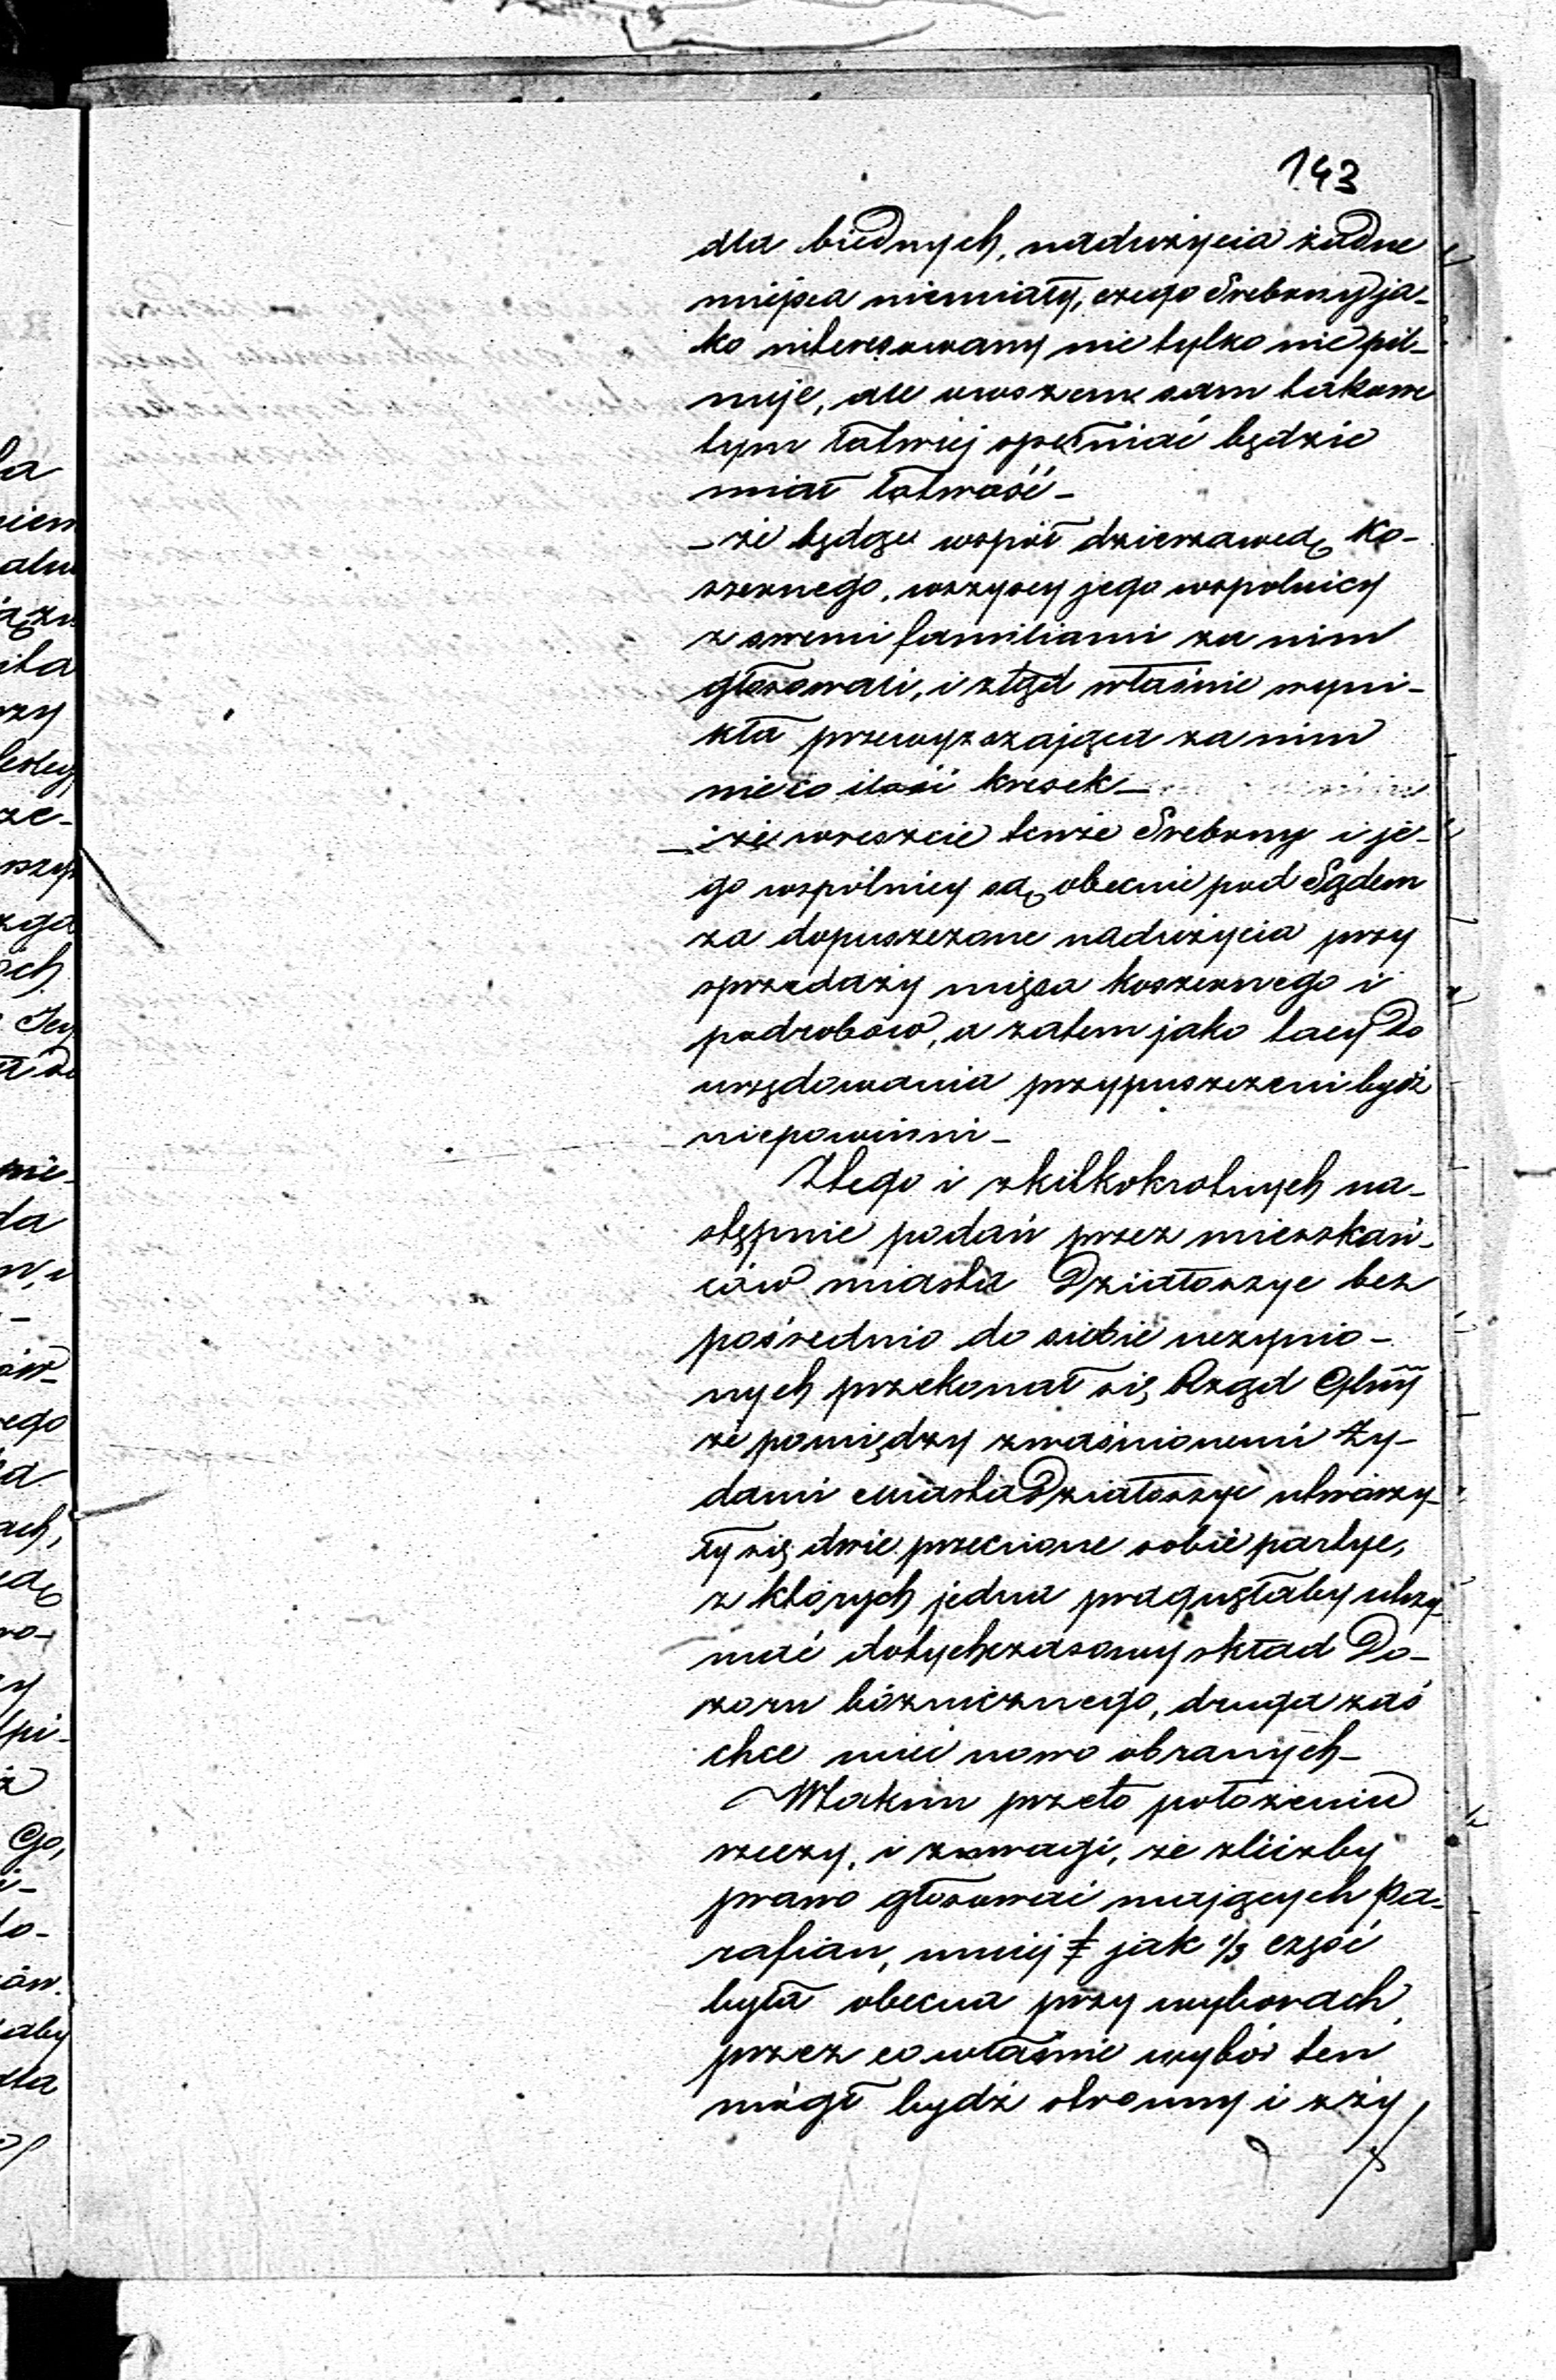 143
dla biednych, nadużycia żadne
miejsca niemiały, czego Srebrny ja-
ko interesowany nie tylko nie pil-
nuje, ale owszem sam takowe
tym łatwiej spełniać będzie
miał łatwość –
– że będąc współ dzierżawcą Ko-
szernego, wszyscy jego wspolnicy
z swemi familiami za nim
głosowali, i ztąd właśnie wyni-
kła przewyższająca za nim
nieco ilość kresek –
– i że wreszcie tenże Srebrny i je-
go wspólnicy są obecnie pod Sądem
za dopuszczone nadużycia przy
sprzedaży mięsa koszernego i
podrobów, a zatem jako tacy do
urzędowania przypuszczeni bydź
niepowinni –
Ztego i zkilkokrotnych na-
stępnie podań przez mieszkań-
ców miasta Działoszyc bez
pośrednio do siebie uczynio-
nych przekonał się Rząd Gplny
że pomiędzy zwaśnionemi Ży-
dami miasta Działoszyc utworzy-
ły się dwie przeciwne sobie partye,
z których jedna pragnęłaby utrzy-
mać dotychczasowy skład Do-
zoru bóżnicznego, druga zaś
chce mieć nowo obranych –
Wtakim przeto położeniu
rzeczy, i zuwagi, że zliczby
prawo głosować mających Pa-
rafian, mniej jak 1/3 część
była obecna przy wyborach,
przez co właśnie wybór ten
mógł bydź stronny i zży